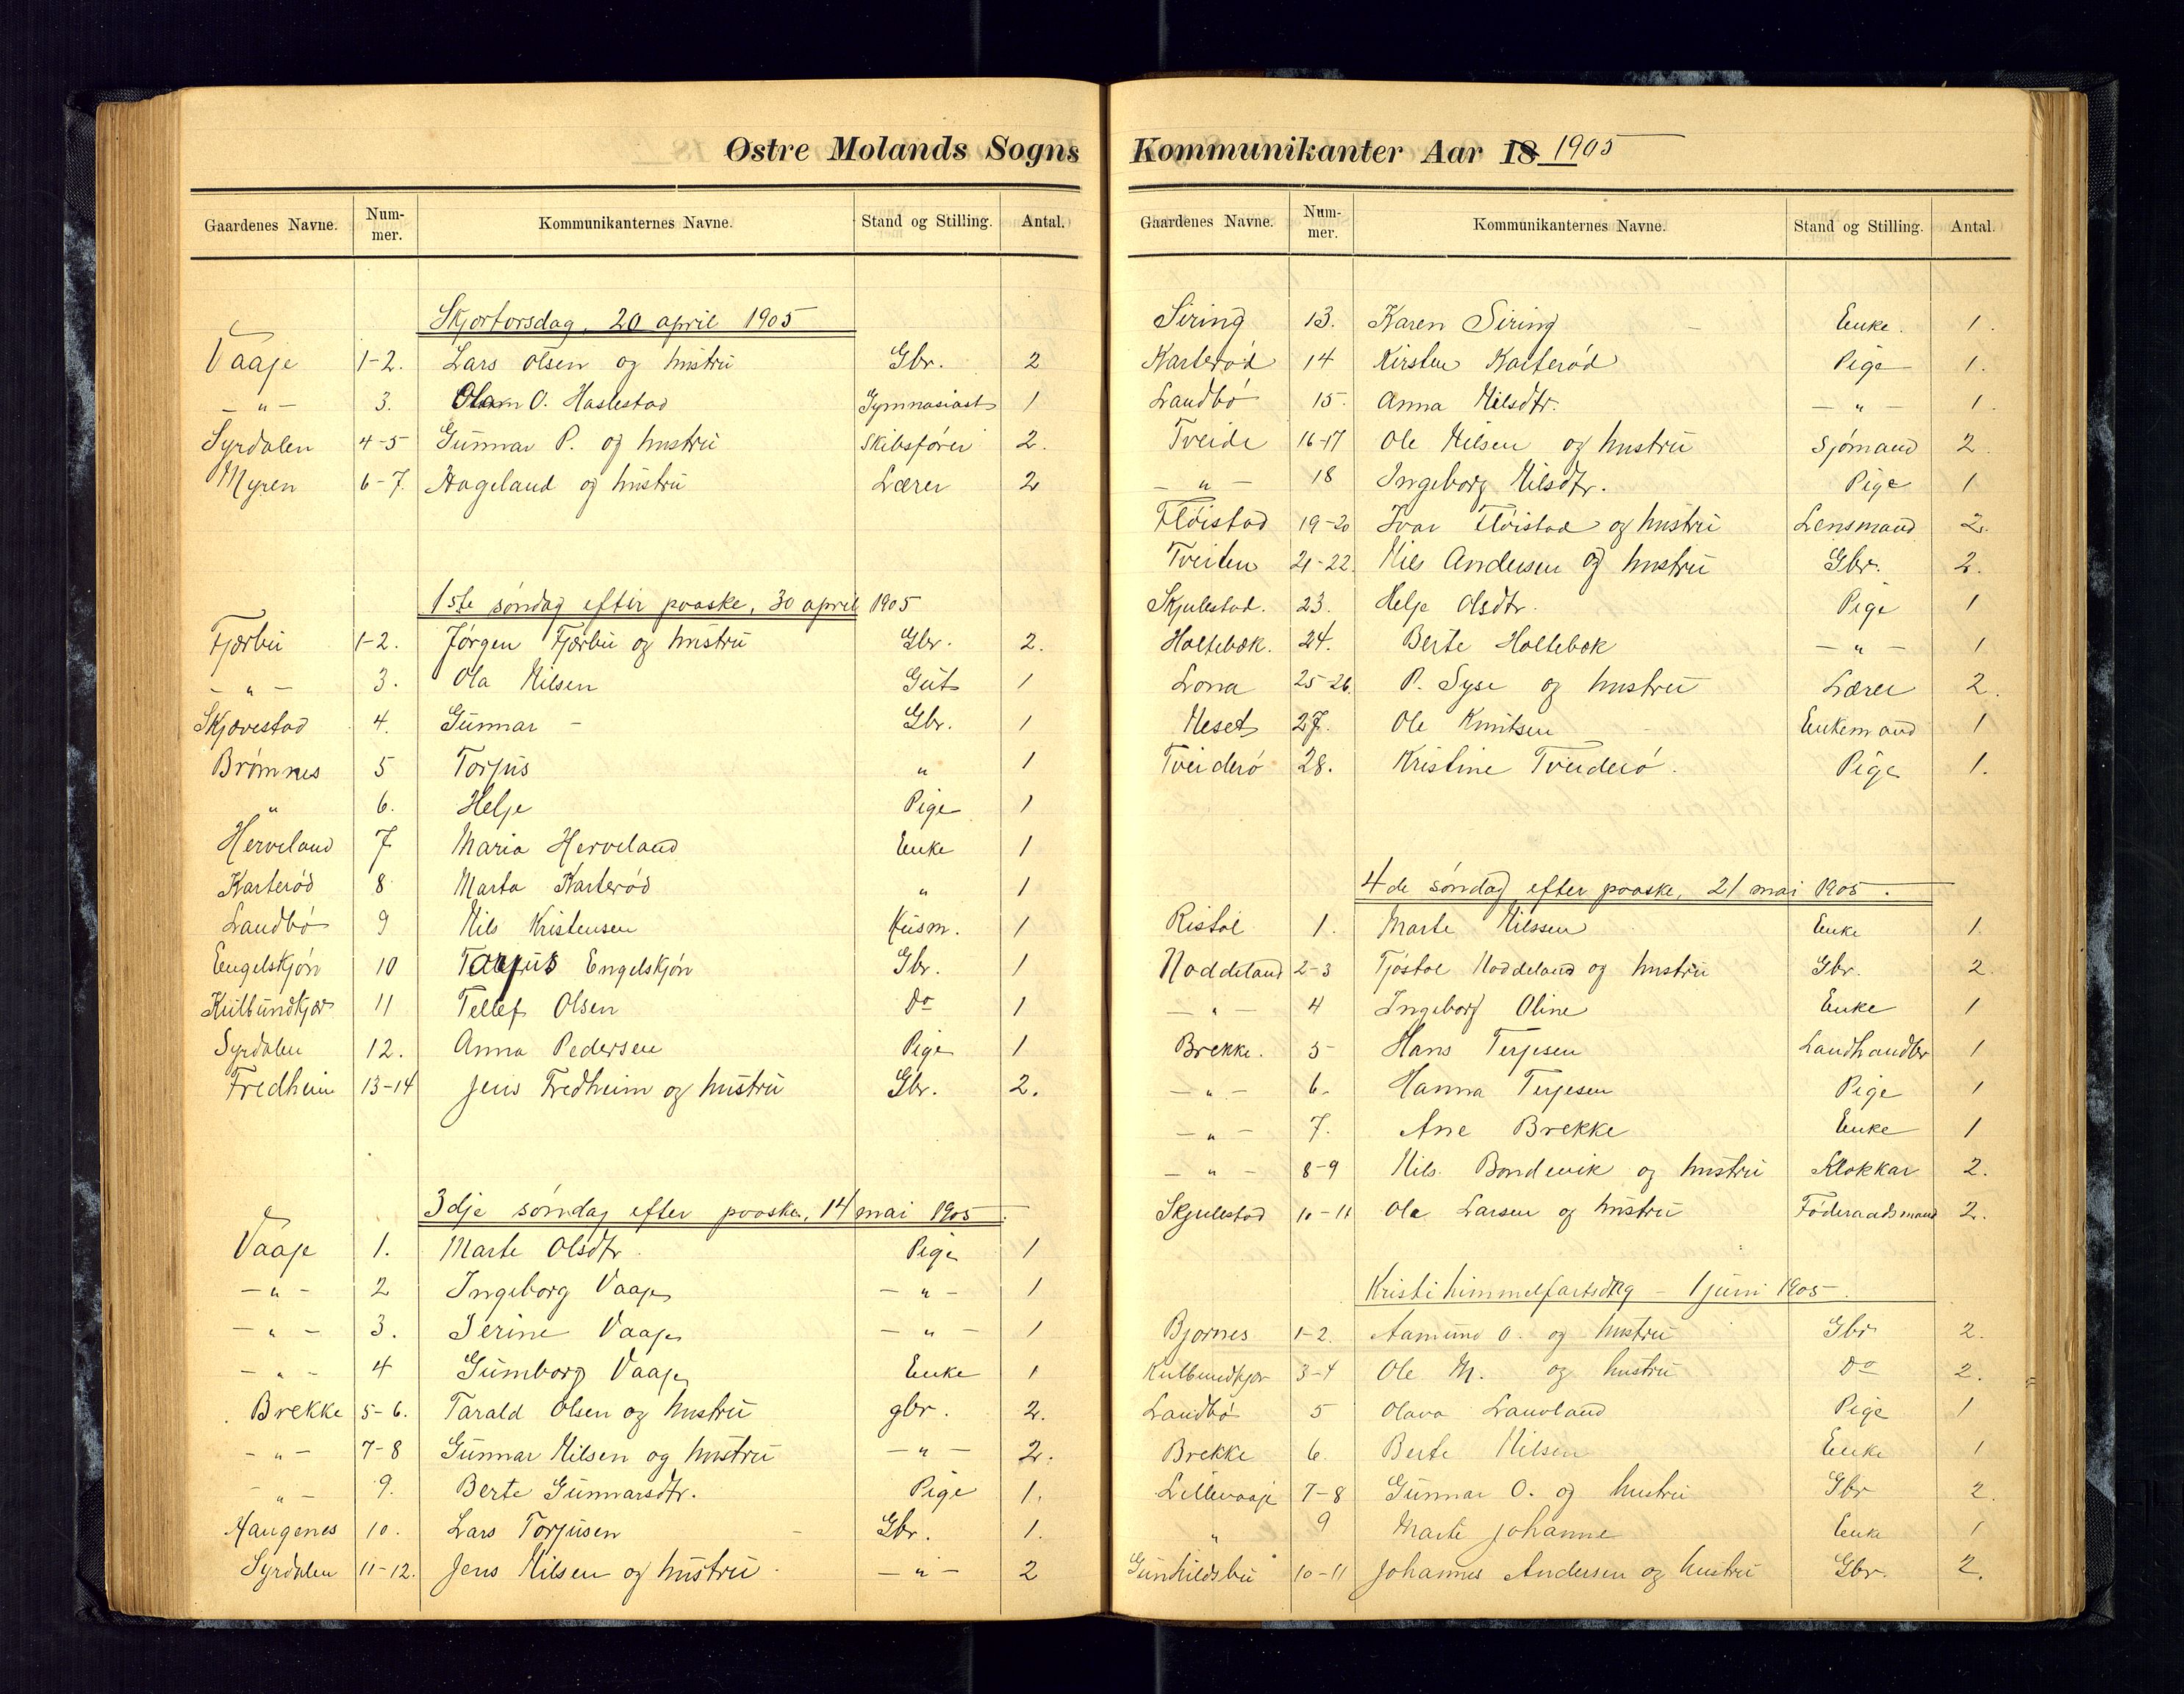 Østre Molands Sogns
Gaardenes Navne. Num-mer. Kommunikanternes Navne. Stand og Stilling. Antal.
Skjærtorsdag, 20 april 1905
Vaaje 1-2. Lars Olsen og hustru Gbr. 2
— " — 3. O. Haslestad Gymnasiast 1
Syrdalen 4-5 Gunnar P. og hustru Skibsfører 2.
Myren 6-7. Hageland og hustru Lærer 2
1ste søndag efter paaske, 30 april 1905
Fjærbu 1-2. Jørgen Fjærbu og hustru Gbr. 2.
— " — 3. Ola Nilsen Gut 1
Skjævestad 4. Gunnar – Gbr. 1
Brømnes 5 Torjus " 1
" 6. Helje Pige 1
Herveland 7 Maria Herveland Enke 1
Karterød 8 Marta Karterød " 1
Landbø 9 Nils Kristensen Husm. 1
Engelskjøn 10 Torjus Engelskjøn Gbr. 1
Kulbundkjær 11 Tellef Olsen Do 1
Syrdalen 12. Anna Pedersen Pige 1
Fredheim 13-14 Jens Fredheim og hustru Gbr. 2.
3dje søndag efter paaske, 14 mai 1905.
Vaaje 1. Marte Olsdtr. Pige 1
— " — 2 Ingeborg Vaaje — " — 1
— " — 3. Serine Vaaje — " — 1
— " — 4 Gumborg Vaaje Enke 1
Brekke 5-6. Tarald Olsen og hustru gbr. 2.
— " — 7-8 Gunnar Nilsen og hustru — " — 2.
— " — 9. Berte Gunnarsdtr. Pige 1.
Haugenes 10. Lars Torjusen Gbr. 1.
Syrdalen 11-12. Jens Nilsen og hustru — " — 2
Kommunikanter Aar 18 1905
Gaardenes Navne. Num-mer. Kommunikanternes Navne. Stand og Stilling. Antal.
Siring 13. Karen Siring Enke. 1.
Karterød 14 Kirsten Karterød Pige 1.
Landbø 15. Anna Nilsdtr. — " — 1.
Tveide 16-17 Ole Nilsen og hustru Sjømand 2
— " — 18 Ingeborg Nilsdtr. Pige 1
Fløistad 19-20 Ivar Fløistad og hustru Lensmand 2.
Tveiten 21-22. Nils Andersen og hustru Gbr. 2.
Skjulestad. 23. Helje Olsdtr. Pige 1
Holtebæk. 24. Berte Holtebæk — " — 1
Lona 25-26. P. Syse og hustru Lærer 2.
Neset 27. Ole Knutsen Enkemand 1
Tveiderø 28. Kristine Tveiderø. Pige 1.
4de søndag efter paaske, 21 mai 1905.
Ristøl 1. Marte Nilssen Enke 1.
Noddeland 2-3 Tjøstol Noddeland og hustru Gbr. 2.
— " — 4 Ingeborg Oline Enke 1
Brekke. 5 Hans Terjesen Landhandler 1
— " — 6. Hanna Terjesen Pige 1
— " — 7. Ane Brekke Enke 1
— " — 8-9 Nils Bondevik og hustru Klokkar 2.
Skjulestad 10-11 Ole Larsen og hustru Føderaadsmand 2.
Kristi himmelfartsdag – 1 juni 1905.
Bjornes 1-2. Aamund O. og hustru Gbr 2.
Kulbundkjær 3-4 Ole M. og hustru Do 2.
Landbø 5 Olava Lauvland Pige 1
Brekke 6. Berte Nilsen Enke 1
Lillevaaje 7-8 Gunnar O. og hustru Gbr 2.
" 9 Marte Johanne Enke 1
Gunhildsbu 10-11 Johannes Andersen og hustru Gbr. 2.